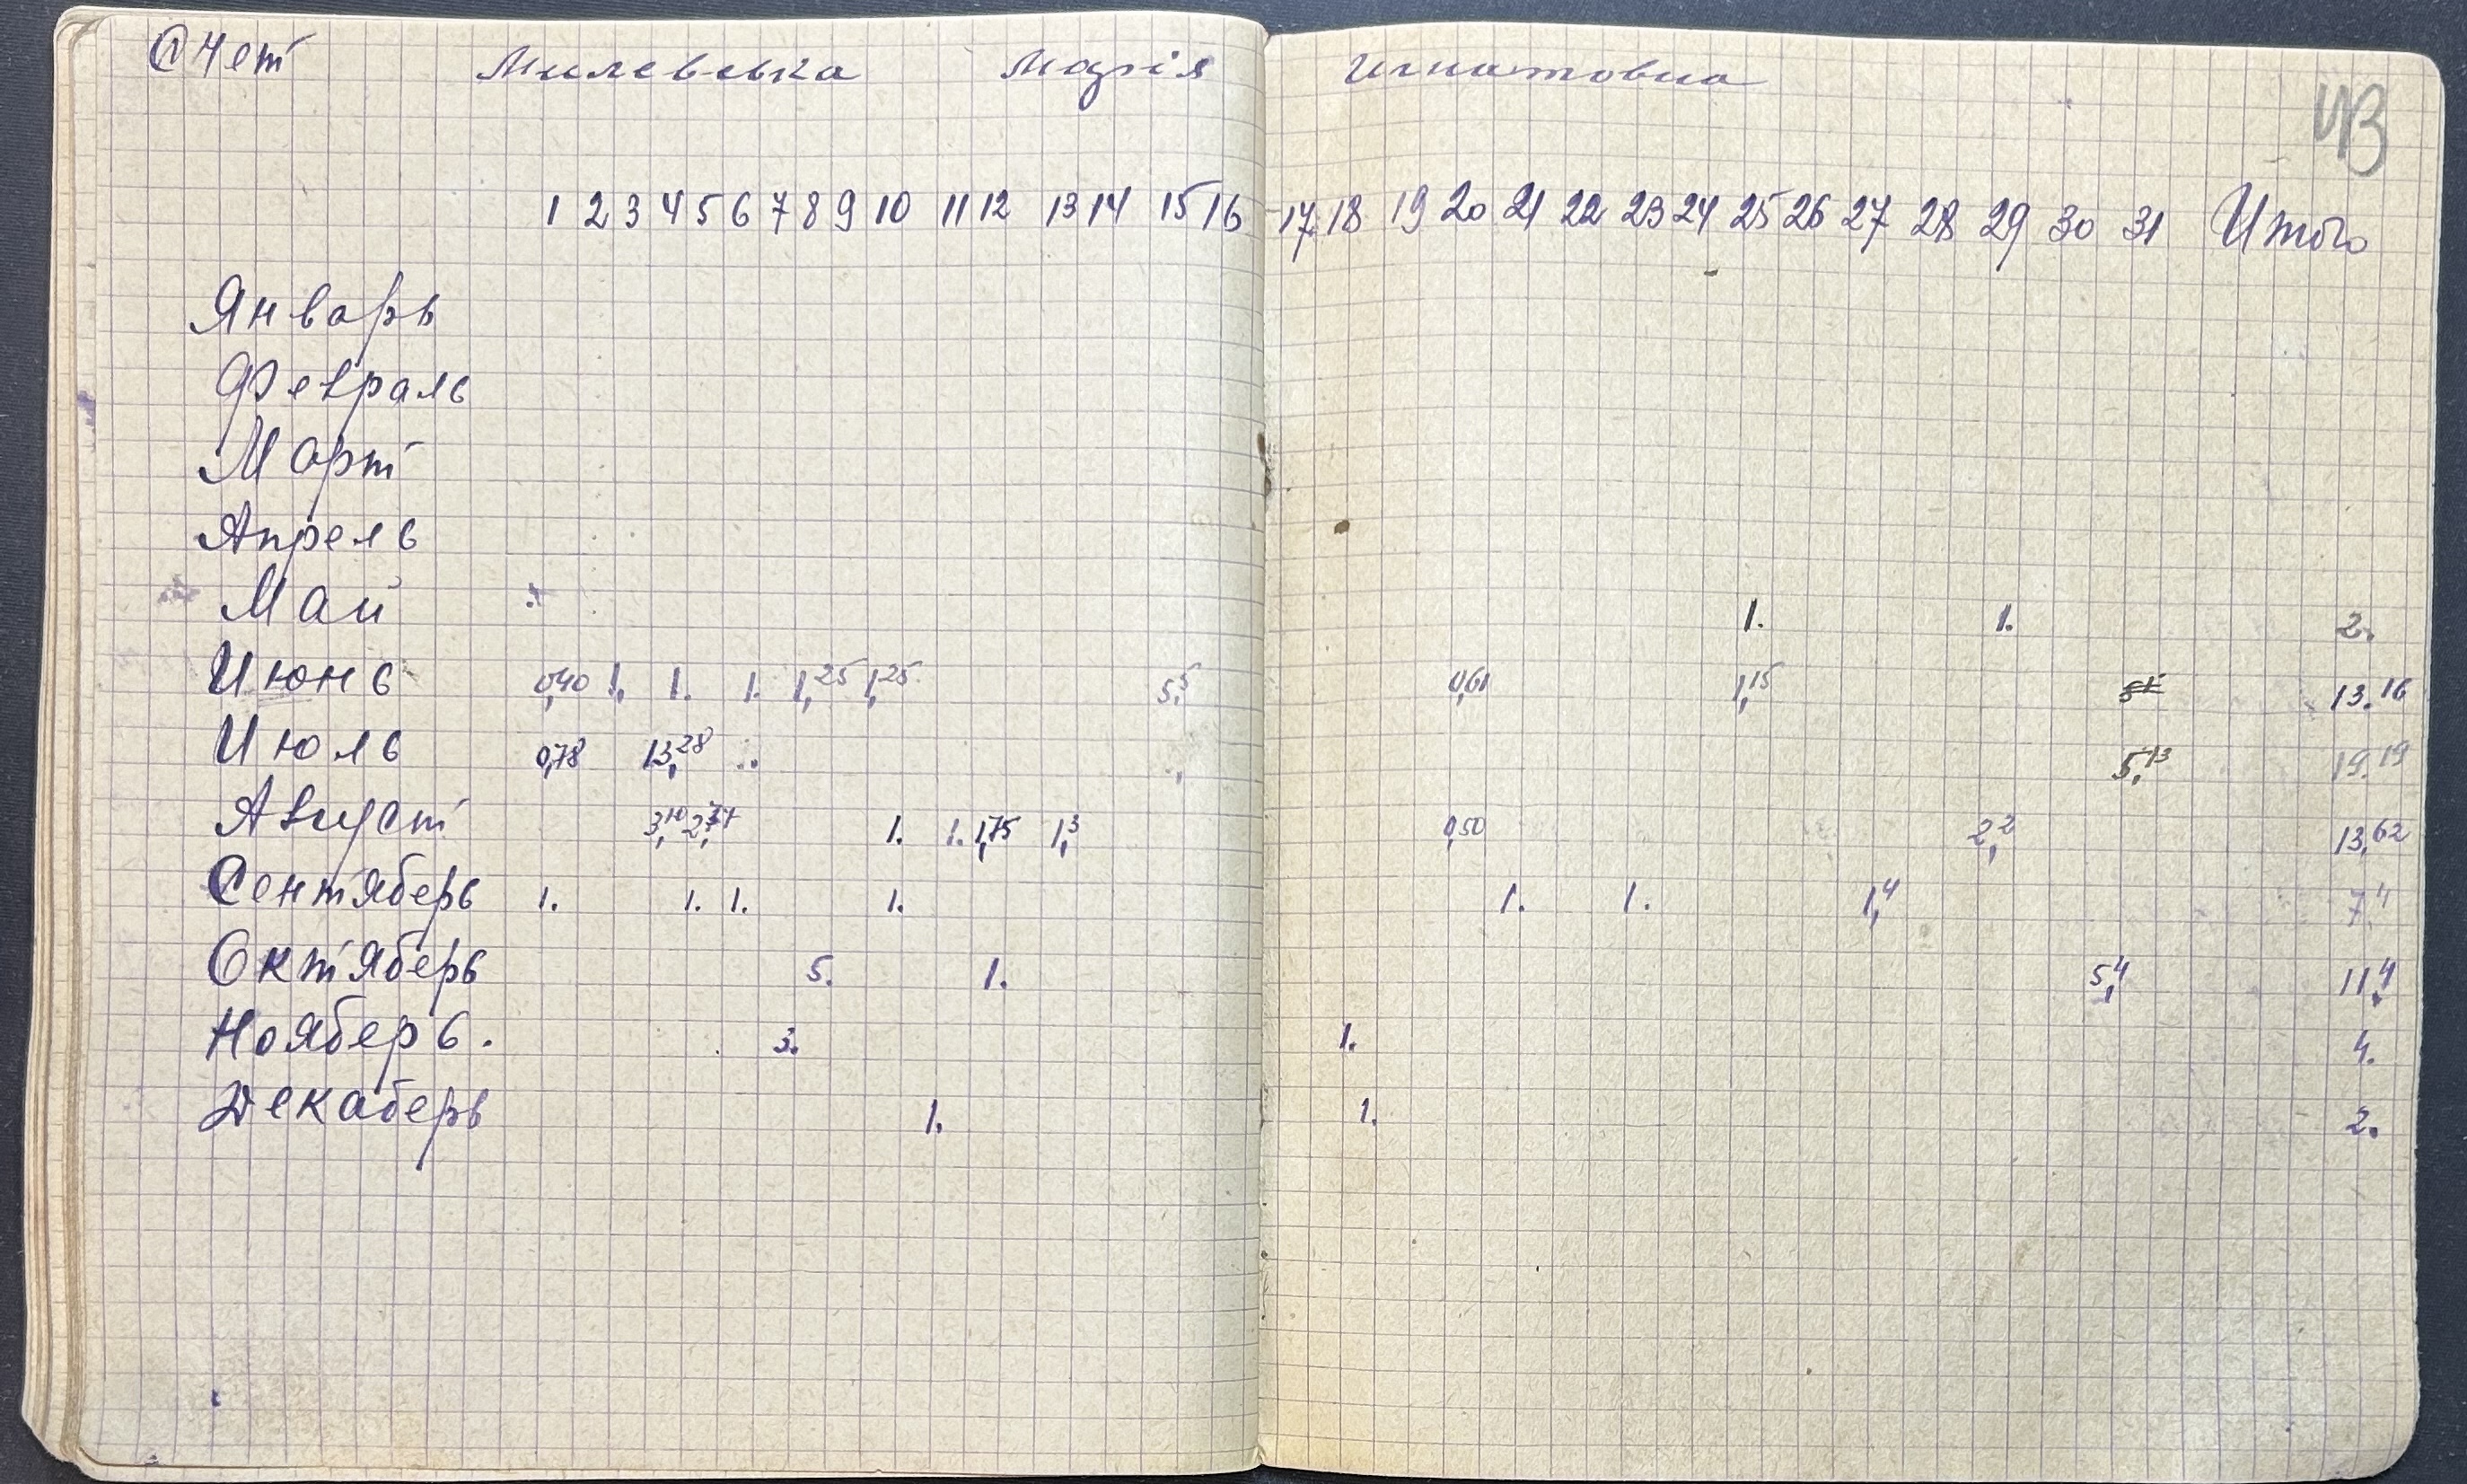 Счет Милевська Марія Игнатовна
43
1 2 3 4 5 6 7 8 9 10 11 12 13 14 15 16 17 18 19 20 21 22 23 24 25 26 27 28 29 30 31 Итого
Январь
Февраль
Март
Апрель
Май 1. 1. 2.
Июнь 0,40 1. 1. 1. 1,25 1,25 5,5 0,61 1,15 13.16
Июль 0,78 13,28 5,13 19.19
Август 3,10 1. 1. 1,75 1,3 0,50 2,2 13,62
Сентяберь 1. 1. 1. 1. 1. 1. 1,4 7,4
Октяберь 5. 1. 5,4 11,4
Нояберь. 3. 1. 4.
Декаберь 1. 1. 2.